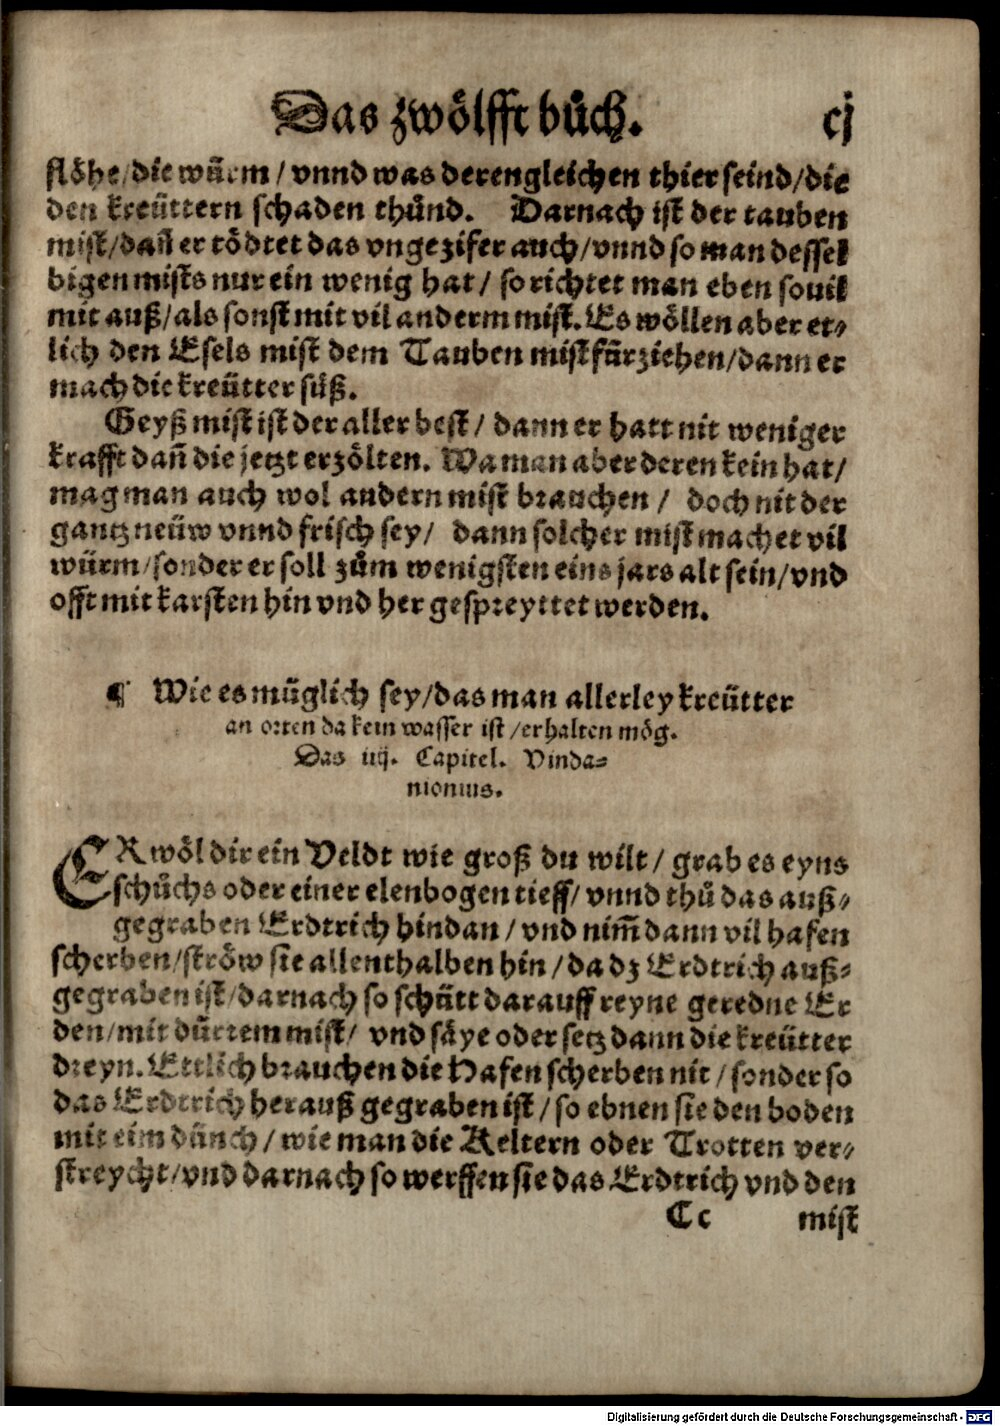 Das zwölfft bůch. cj
flöhe/die wůrm/vnnd was derengleichen thier seind/die
den kreüttern schaden thůnd. Darnach ist der tauben
mist/dañ er tödtet das vngezifer auch/vnnd so man dessel
bigen mists nur ein wenig hat/so richtet man eben souil
mit auß/als sonst mit vil anderm mist. Es wöllen aber et⸗
lich den Esels mist dem Tauben mist fürziehen/dann er
mach die kreütter süß.
Geyß mist ist der aller best/dann er hatt nit weniger
krafft dañ die jetzt erzölten. Wa man aber deren kein hat/
mag man auch wol andern mist brauchen/ doch nit der
gantz neüw vnnd frisch sey/ dann solcher mist machet vil
würm/sonder er soll zům wenigsten eins jars alt sein/vnd
offt mit karsten hin vnd her gespreyttet werden.
¶ Wie es müglich sey/das man allerley kreütter
an orten da kein wasser ist/erhalten mög.
Das iiij. Capitel. Vinda⸗
nionius.
ERwöl dir ein Veldt wie groß du wilt/grab es eyns
schůchs oder einer elenbogen tieff/vnnd thů das auß⸗
gegraben Erdtrich hindan/vnd nim̄ dann vil hafen
scherben/ströw sie allenthalben hin/da dz Erdtrich auß⸗
gegraben ist/darnach so schütt darauff reyne geredne Er
den/mit dürrem mist/ vnd säye oder setz dann die kreütter
dreyn. Ettlich brauchen die Hafen scherben nit/sonder so
das Erdtrich herauß gegraben ist/so ebnen sie den boden
mit eim dünch/wie man die Keltern oder Trotten ver⸗
streycht/vnd darnach so werffen sie das Erdtrich vnd den
Cc mist
Digitalisierung gefördert durch die Deutsche Forschungsgemeinschaft - DFG